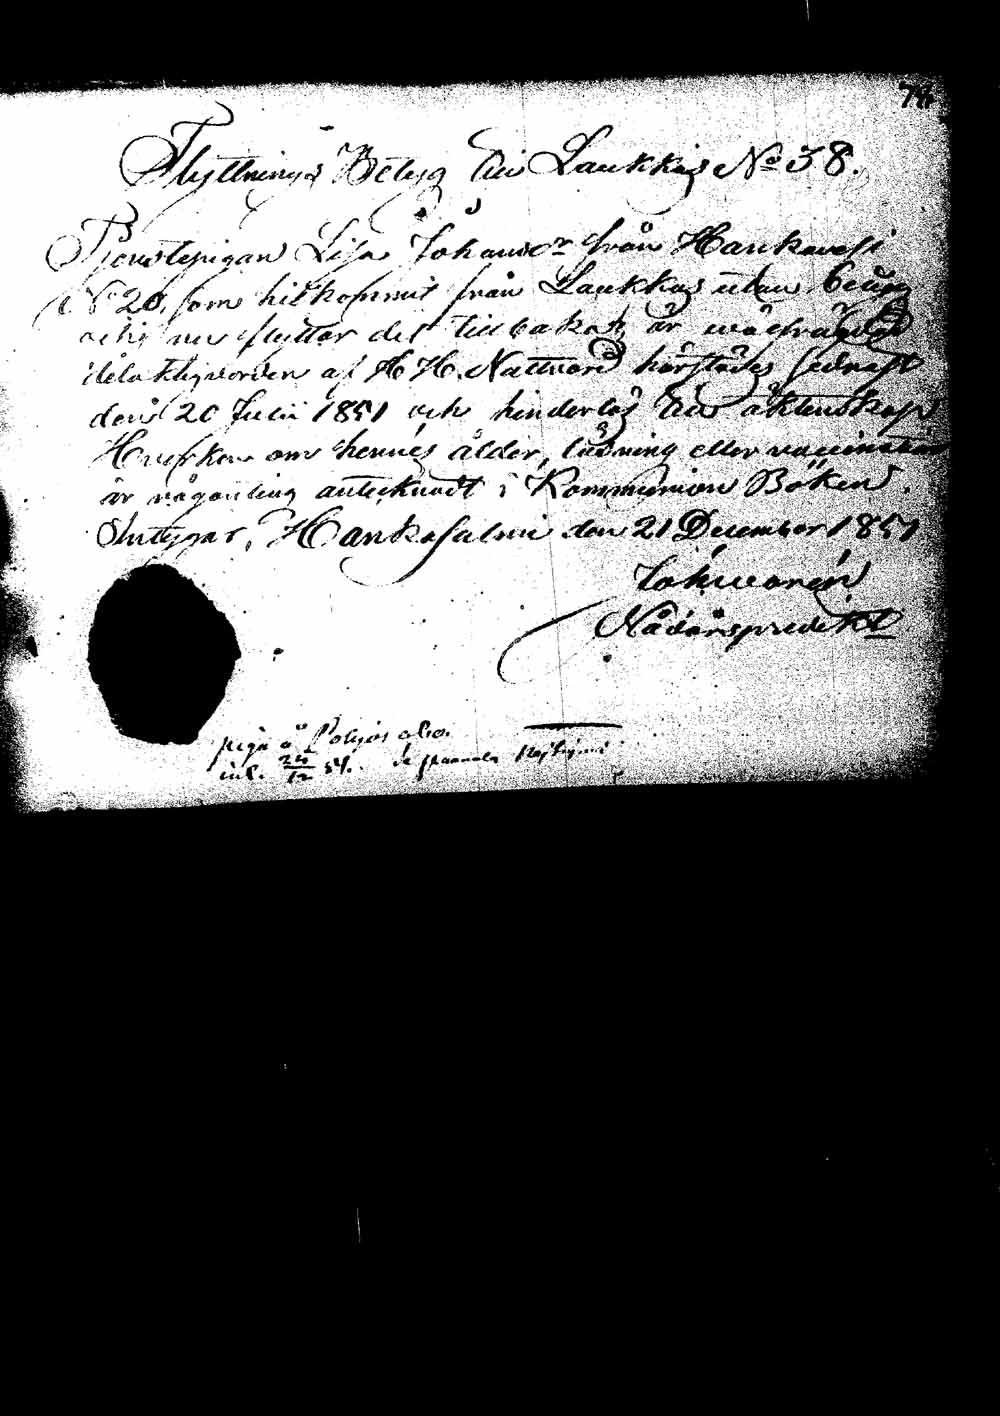 78
Flyttnings Betyg till Laukkas No 38.
Tjenstepigan Lisa Johansdr från Hankavesi
No 20, som hitkommit från Laukkas utan betyg
och nu flyttar dit tillbaka, är wälfräjdad
delaktigworden af H. H. Nattvard härstädes sednast
den 20 Julii 1851 och hinderlös till äktenskap
Hwarken om hennes ålder, läsning eller vaccination
är någonting antecknadt i Kommunion Boken.
Hankasalmi den 21 December 1851
Nådårspredikt
piga å
inl. 24/12 51. de gamla